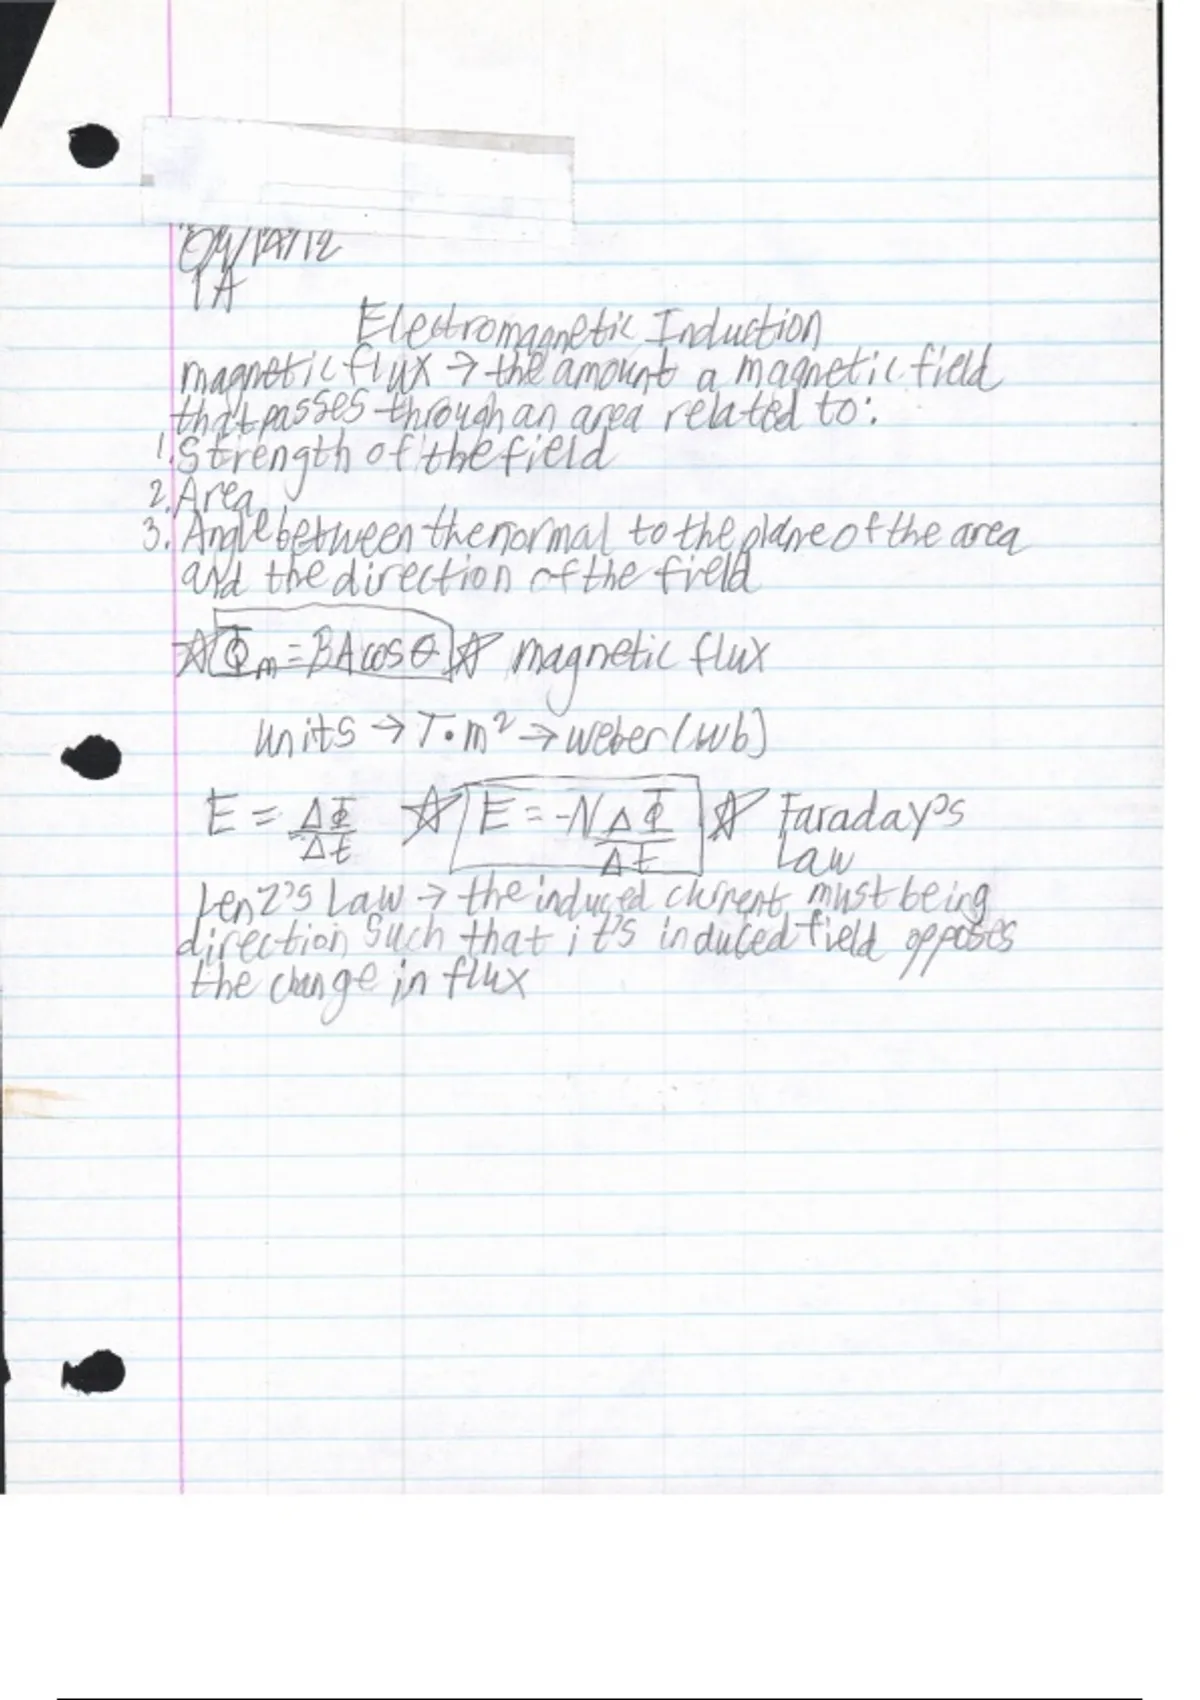 1A
Electromagnetic Induction
magnetic flux → the amount a magnetic field
that passes through an area related to:
1. Strength of the field
2. Area
3. Angle between the normal to the plane of the area
and the direction of the field
☆ Φm = BA cos θ ☆ magnetic flux
units → T•m² → weber (wb)
E = ΔΦ/Δt ☆ E = -N ΔΦ/Δt ☆ Faraday's Law
Lenz's Law → the induced current must being
direction such that it's induced field opposes
the change in flux